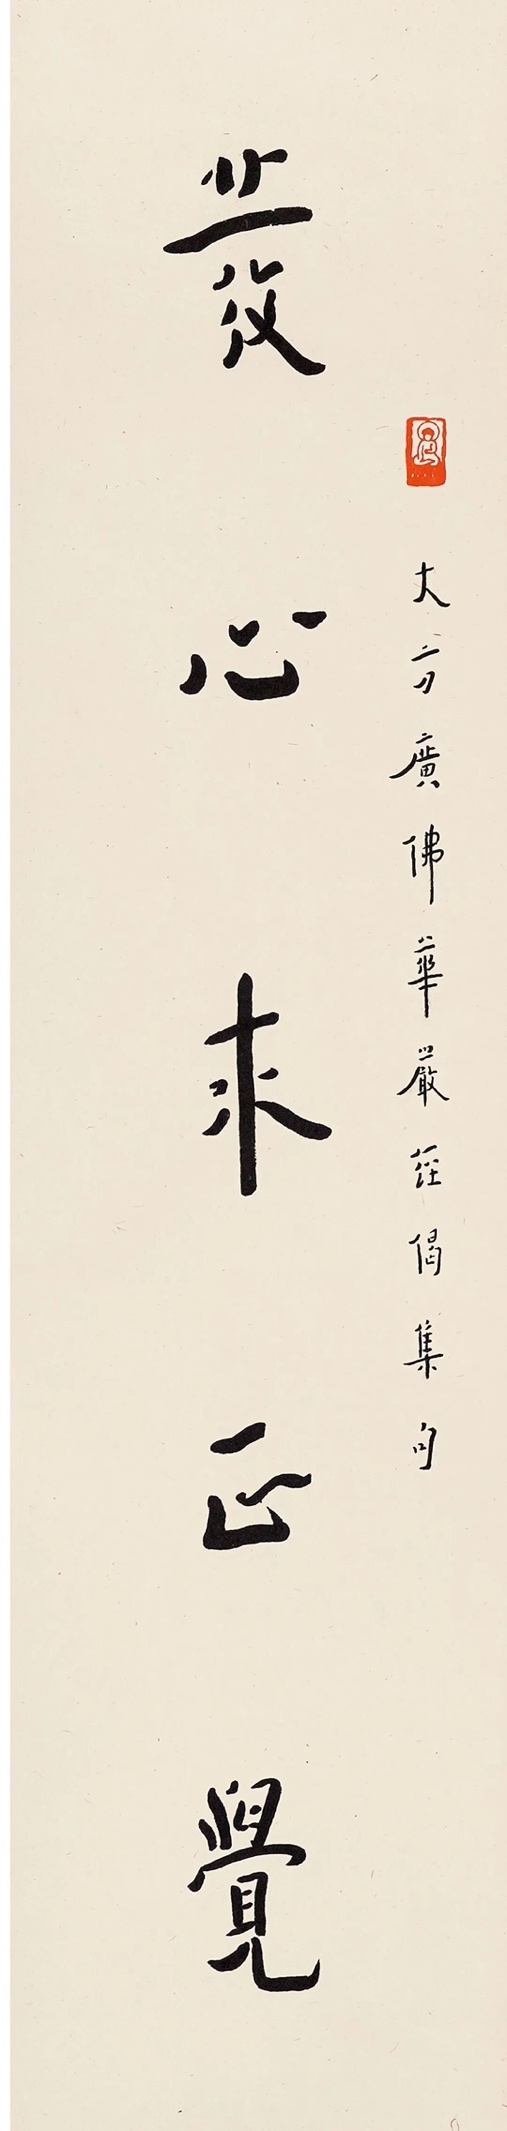 大方廣佛華嚴經偈集句
發心求正覺